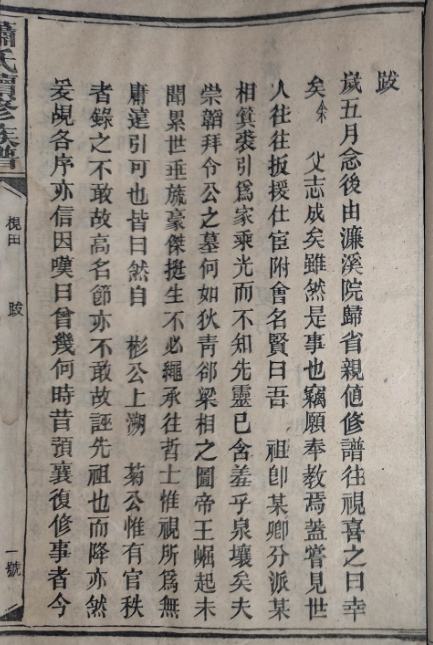 跋
歲五月念後由濂溪院歸省親値修譜往視喜之曰幸
矣余 父志成矣雖然是事也竊願奉教焉蓋嘗見世
人往往扳援仕宦附會名賢曰吾 祖卽某卿分派某
相箕裘引爲家乘光而不知先靈已含羞乎泉壤矣夫
崇韜拜令公之墓何如狄靑卻梁相之圖帝王崛起未
聞累世垂旒豪傑挺生不必繩承往哲士惟視所爲無
庸遠引可也皆曰然自 彬公上溯 菊公惟有官秩
者錄之不敢故高名節亦不敢故誣先祖也而降亦然
爰覘各序亦信因嘆曰曾幾何時昔預襄復修事者今
蕭氏續修族譜
梘田 跋
一號